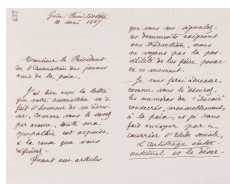 Guise Familistère
10 mai 1897
Monsieur le Président
de l'association des jeunes
amis de la paix,
J'ai bien reçu la lettre
que votre association m'a
fait l'honneur de m'adres-
ser, comme vous le savez
par avance, toute ma
sympathie est acquise
à la cause que vous
défendez.
Quant aux articles
que vous me signalez,
ces documents exigeant
une traduction, nous
ne voyons pas la pos-
sibilité de les faire pour
ce moment.
Je vous ferai adresser
comme vous le désirez,
les numéros du "Devoir"
consacrés, mensuellement,
à la paix, et je vous
fais envoyer par ce
courrier
L'arbitrage inter-
national et le désar-